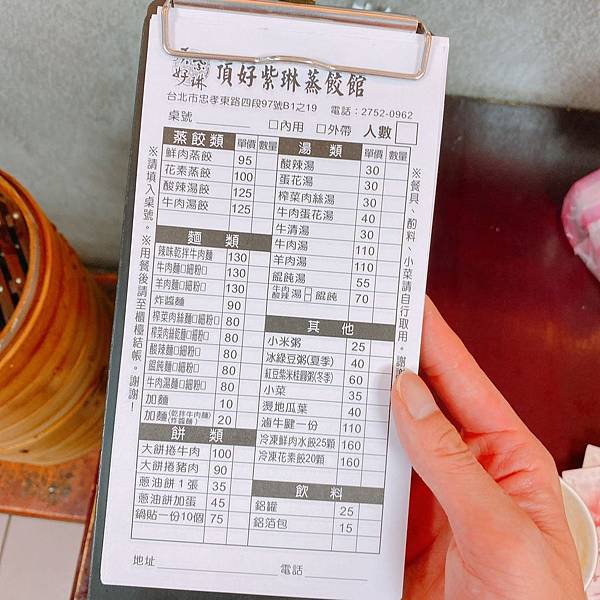 頂好紫琳蒸餃館
台北市忠孝東路四段97號B1之19 電話：2752-0962
桌號 □內用 □外帶 人數□
※請填入桌號。※用餐後請至櫃檯結帳。謝謝！
蒸餃類 單價 數量
鮮肉蒸餃 95
花素蒸餃 100
酸辣湯餃 125
牛肉湯餃 125
麵類
辣味乾拌牛肉麵 130
牛肉麵□細粉□ 130
羊肉麵□細粉□ 130
炸醬麵 90
榨菜肉絲麵□細粉□ 80
榨菜肉絲乾麵□細粉□ 80
酸辣麵□細粉□ 80
餛飩麵□細粉□ 80
牛肉湯麵□細粉□ 80
加麵 10
加麵(乾拌牛肉麵)(炸醬麵) 20
餅類
大餅捲牛肉 100
大餅捲豬肉 90
蔥油餅1張 35
蔥油餅加蛋 45
鍋貼一份10個 75
湯類 單價 數量
酸辣湯 30
蛋花湯 30
榨菜肉絲湯 30
牛肉蛋花湯 40
牛清湯 30
牛肉湯 110
羊肉湯 110
餛飩湯 55
牛肉□酸辣□湯餛飩 70
其他
小米粥 25
冰綠豆粥(夏季) 40
紅豆紫米桂圓粥(冬季) 60
小菜 35
燙地瓜葉 40
滷牛腱一份 110
冷凍鮮肉水餃25顆 160
冷凍花素餃20顆 160
飲料
鋁罐 25
鋁箔包 15
※餐具、酌料、小菜請自行取用。謝謝
地址 電話